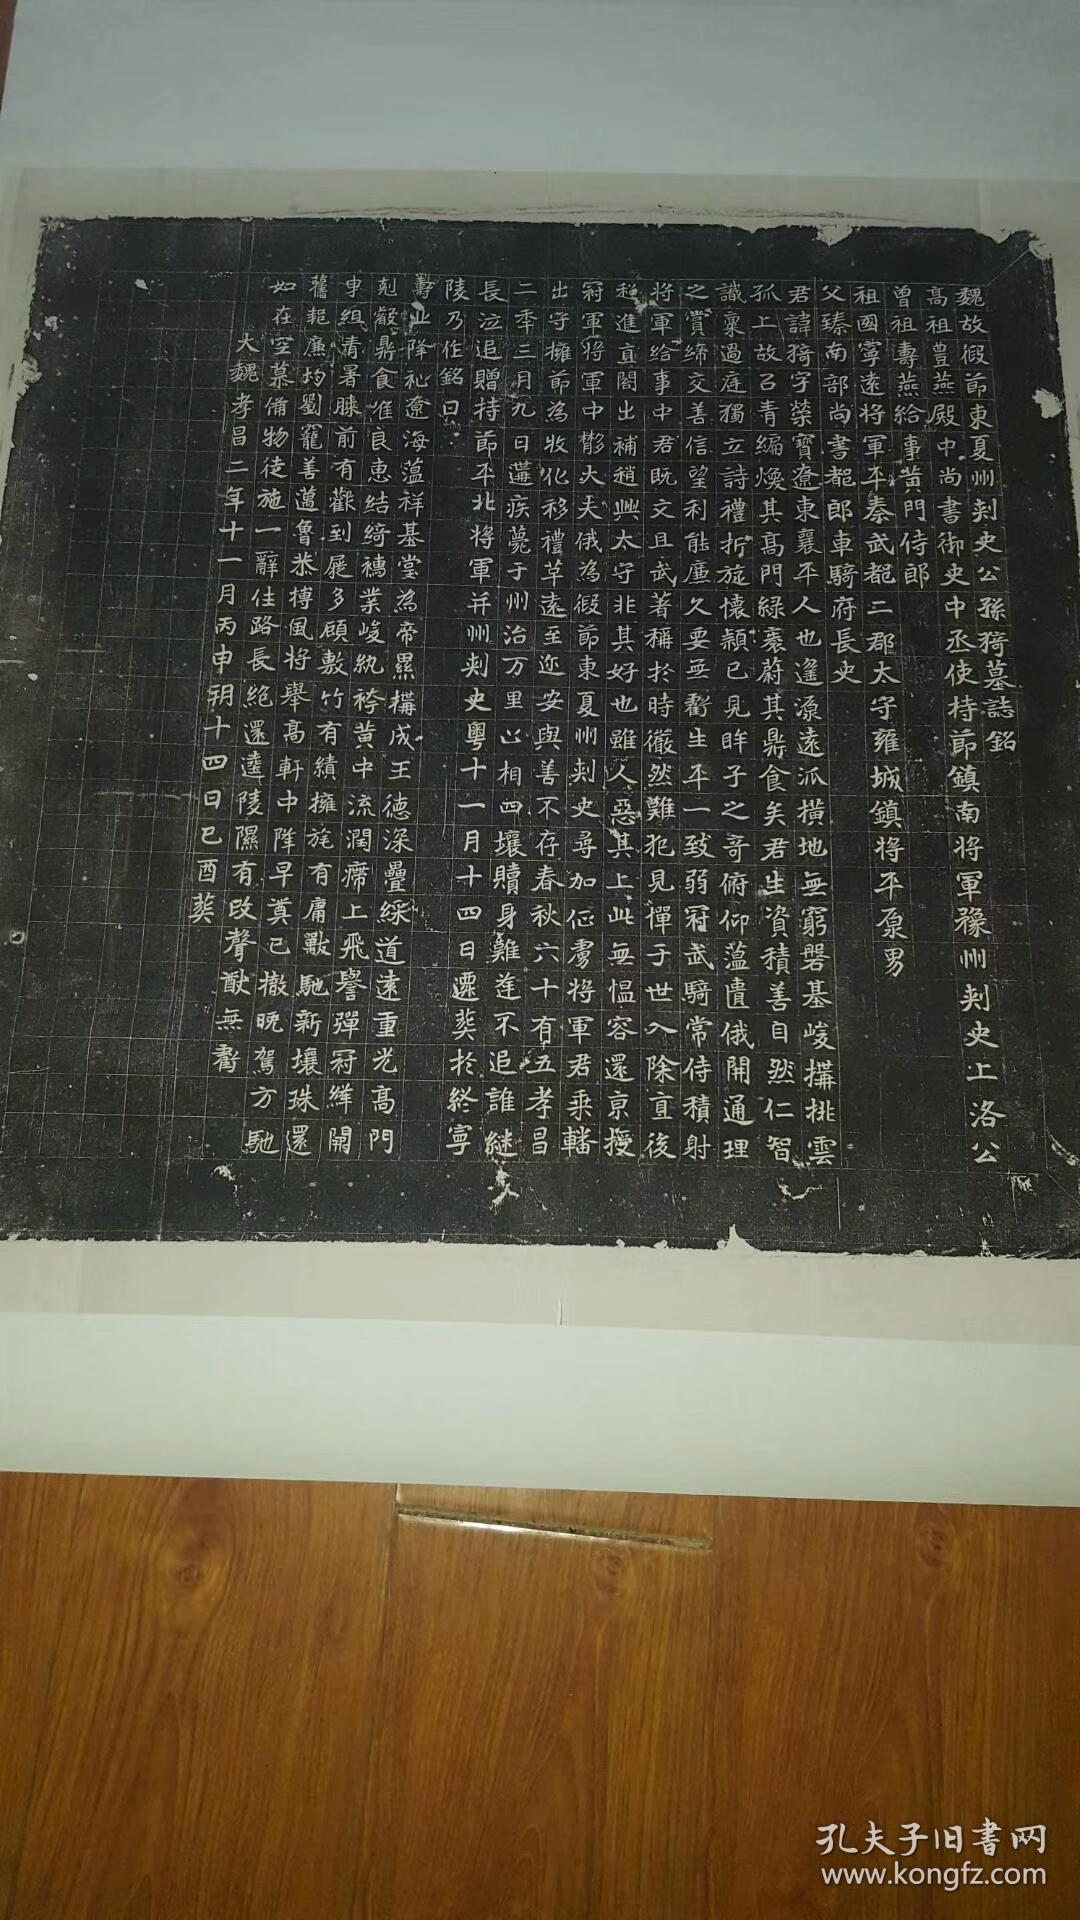 魏故假節東夏州刾史公孫猗墓誌銘
高祖豊燕殿中尚書御史中丞使持節鎮南將軍豫州刾史上洛公
曾祖壽燕給事黄門侍郎
祖國寧遠將軍平秦武都二郡太守雍城鎮將平原男
父臻南部尚書都郎車騎府長史
君諱猗字榮寶遼東襄平人也遥源遠派橫地無窮磐基峻搆桃雲
孤上故已青編煥其高門緑袠蔚其鼎食矣君生資積善自然仁智
識稟過庭獨立詩禮折旋懷穎已見眸子之奇俯仰蕴匱俄開通理
之賞締交善信望利能廉久要無虧生平一致弱冠武騎常侍積射
將軍給事中君既文且武著稱於時儼然難犯見憚于世入除直後
稍進直閤出補趙興太守非其好也雖人惡其上此無愠容還京授
冠軍將軍中散大夫俄為假節東夏州刾史尋加征虜將軍君乘轓
出守擁節為牧化移禮草遠至迩安與善不存春秋六十有五孝昌
二年三月九日遘疾薨于州治万里亾相四壤贖身難追不追誰継
長泣追贈持節平北將軍并州刾史粵十一月十四日遷葬於終寧
陵乃作銘曰
壽止降祉遼海蕰祥基堂為帝累搆成王德深疊綵道遠重光高門
剋叡鼎食惟良惠結綺襦業峻紈袴黄中流潤席上飛譽彈冠絳闕
申組清署膝前有歡到屣多顧敷竹有績擁旄有庸獸馳新壤珠還
舊軫廉均劉寵善邁魯恭搏風將舉高軒中降早奠已撤晚駕方馳
如在空慕備物徒施一辭佳路長絶還逵陵隰有改聲猷無虧
大魏孝昌二年十一月丙申朔十四日己酉葬
孔夫子旧書网
www.kongfz.com